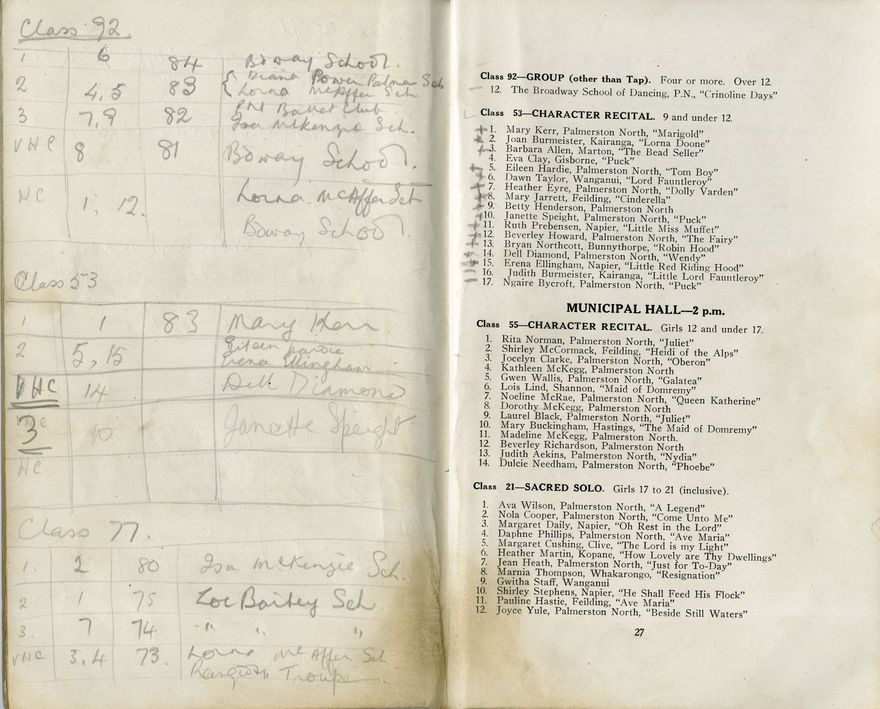 Class 92
1 6 84 Boway School.
2 4,5 83 { Diana Bower Palmer Sch
Lorna McAffer Sch
3 7,9 82 Ballet Club
Isa McKenzie Sch.
VHC 8 81 Boway School.
HC 1, 12. Lorna McAffer Sch
Boway School
Class 53
1 1 83 Mary Kerr
2 5,15 Eileen Hardie
Erena Ellingham
VHC 14 Dell Diamond
3 10 Janette Speight
HC
Class 77.
1 2 80 Isa McKenzie Sch.
2 1 75 Zoe Bailey Sch
3. 7 74 " " "
VHC 3,4 73. Lorna McAffer Sch
Troupe
Class 92—GROUP (other than Tap). Four or more. Over 12.
12. The Broadway School of Dancing, P.N., "Crinoline Days"
Class 53—CHARACTER RECITAL. 9 and under 12.
1. Mary Kerr, Palmerston North, "Marigold"
2. Joan Burmeister, Kairanga, "Lorna Doone"
3. Barbara Allen, Marton, "The Bead Seller"
4. Eva Clay, Gisborne, "Puck"
5. Eileen Hardie, Palmerston North, "Tom Boy"
6. Dawn Taylor, Wanganui, "Lord Fauntleroy"
7. Heather Eyre, Palmerston North, "Dolly Varden"
8. Mary Jarrett, Feilding, "Cinderella"
9. Betty Henderson, Palmerston North
10. Janette Speight, Palmerston North, "Puck"
11. Ruth Prebensen, Napier, "Little Miss Muffet"
12. Beverley Howard, Palmerston North, "The Fairy"
13. Bryan Northcott, Bunnythorpe, "Robin Hood"
14. Dell Diamond, Palmerston North, "Wendy"
15. Erena Ellingham, Napier, "Little Red Riding Hood"
16. Judith Burmeister, Kairanga, "Little Lord Fauntleroy"
17. Ngaire Bycroft, Palmerston North, "Puck"
MUNICIPAL HALL—2 p.m.
Class 55—CHARACTER RECITAL. Girls 12 and under 17.
1. Rita Norman, Palmerston North, "Juliet"
2. Shirley McCormack, Feilding, "Heidi of the Alps"
3. Jocelyn Clarke, Palmerston North, "Oberon"
4. Kathleen McKegg, Palmerston North
5. Gwen Wallis, Palmerston North, "Galatea"
6. Lois Lind, Shannon, "Maid of Domremy"
7. Noeline McRae, Palmerston North, "Queen Katherine"
8. Dorothy McKegg, Palmerston North
9. Laurel Black, Palmerston North, "Juliet"
10. Mary Buckingham, Hastings, "The Maid of Domremy"
11. Madeline McKegg, Palmerston North.
12. Beverley Richardson, Palmerston North
13. Judith Aekins, Palmerston North, "Nydia"
14. Dulcie Needham, Palmerston North, "Phoebe"
Class 21—SACRED SOLO. Girls 17 to 21 (inclusive).
1. Ava Wilson, Palmerston North, "A Legend"
2. Nola Cooper, Palmerston North, "Come Unto Me"
3. Margaret Daily, Napier, "Oh Rest in the Lord"
4. Daphne Phillips, Palmerston North, "Ave Maria"
5. Margaret Cushing, Clive, "The Lord is my Light"
6. Heather Martin, Kopane, "How Lovely are Thy Dwellings"
7. Jean Heath, Palmerston North, "Just for To-Day"
8. Marnia Thompson, Whakarongo, "Resignation"
9. Gwitha Staff, Wanganui
10. Shirley Stephens, Napier, "He Shall Feed His Flock"
11. Pauline Hastie, Feilding, "Ave Maria"
12. Joyce Yule, Palmerston North, "Beside Still Waters"
27